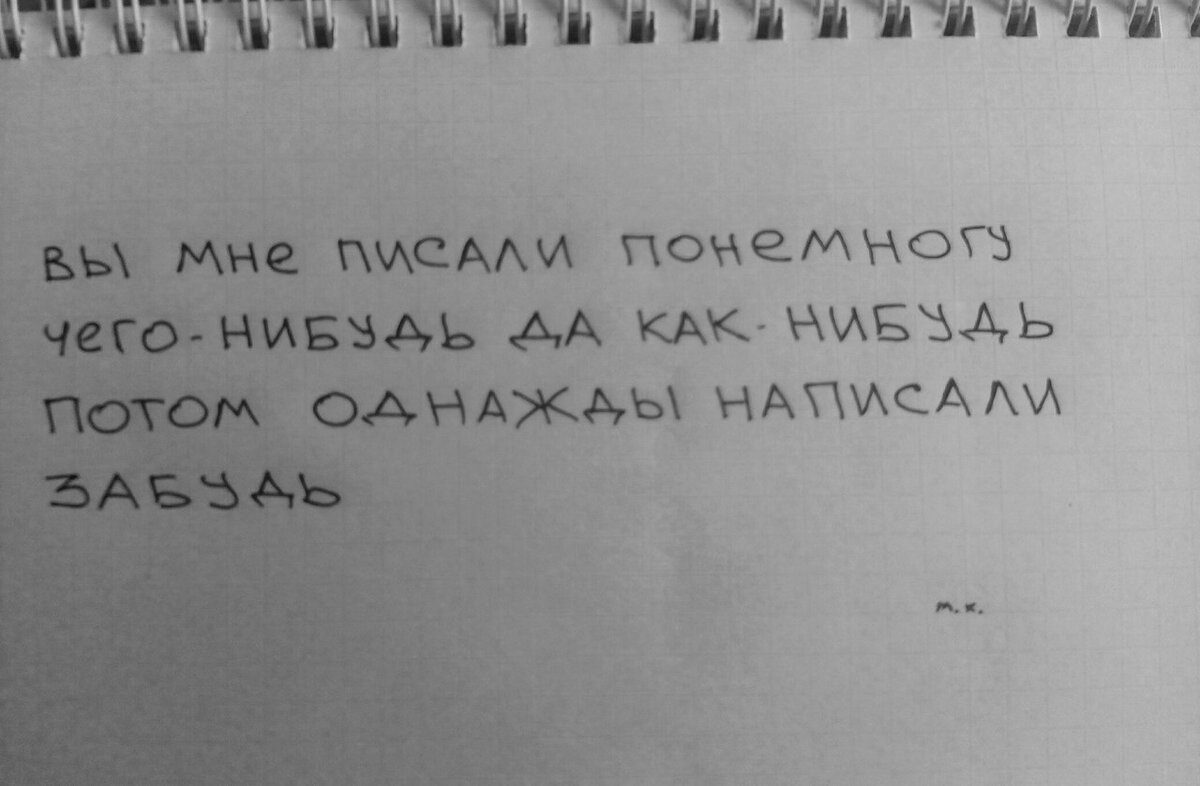 вы мне писали понемногу
чего-нибудь да как-нибудь
потом однажды написали
забудь
м.к.